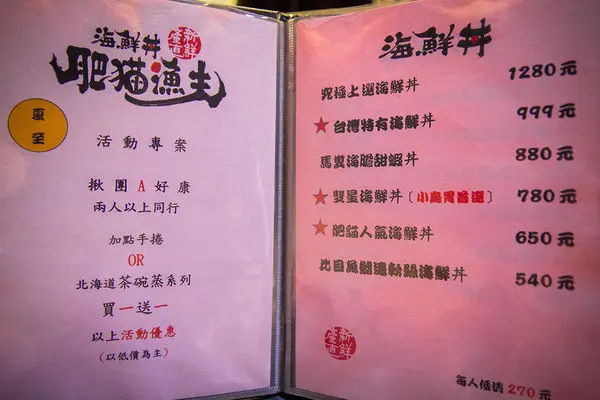 海鮮丼
新鮮
産直
肥猫漁夫
夏
至
活動專案
揪團A好康
兩人以上同行
加點手捲
OR
北海道茶碗蒸系列
買一送一
以上活動優惠
(以低價為主)
海鮮丼
究極上選海鮮丼 1280元
★台灣特有海鮮丼 999元
馬糞海膽甜蝦丼 880元
★雙星海鮮丼〔小鳥胃首選〕 780元
★肥貓人氣海鮮丼 650元
比目魚鰭邊 海鮮丼 540元
新鮮
産直
每人低消270元